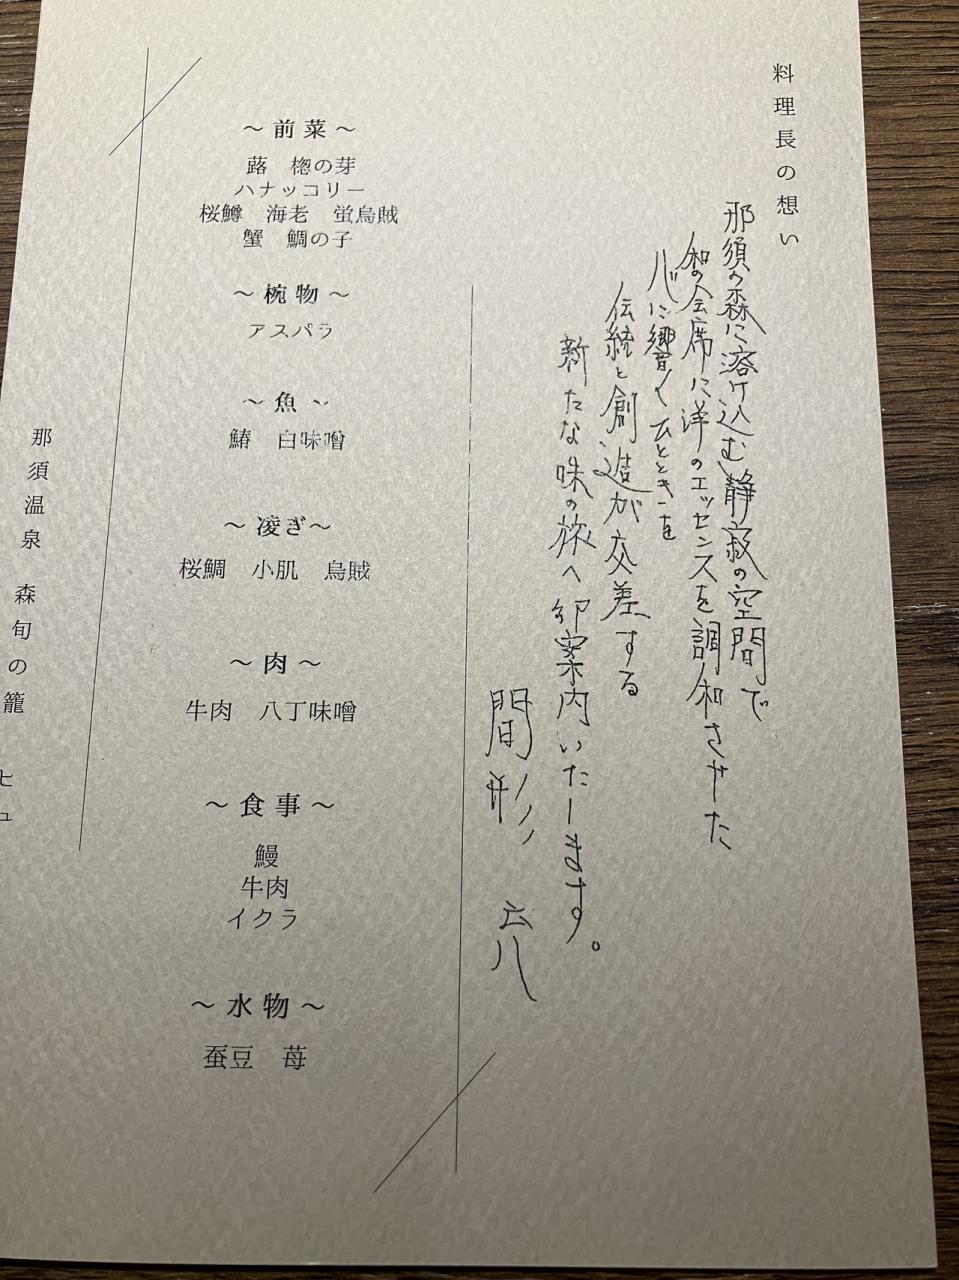 料理長の想い
那須の森に溶け込む静寂の空間で
和の会席に洋のエッセンスを調和させた
心に響くひとときを
伝統と創造が交差する
新たな味の旅へ御案内いたします。
～前菜～
蕗　楤の芽
ハナッコリー
桜鱒　海老　蛍烏賊
蟹　鯛の子
～椀物～
アスパラ
～魚～
鰆　白味噌
～凌ぎ～
桜鯛　小肌　烏賊
～肉～
牛肉　八丁味噌
～食事～
鰻
牛肉
イクラ
～水物～
蚕豆　苺
那須温泉　森旬の籠
ヒュ